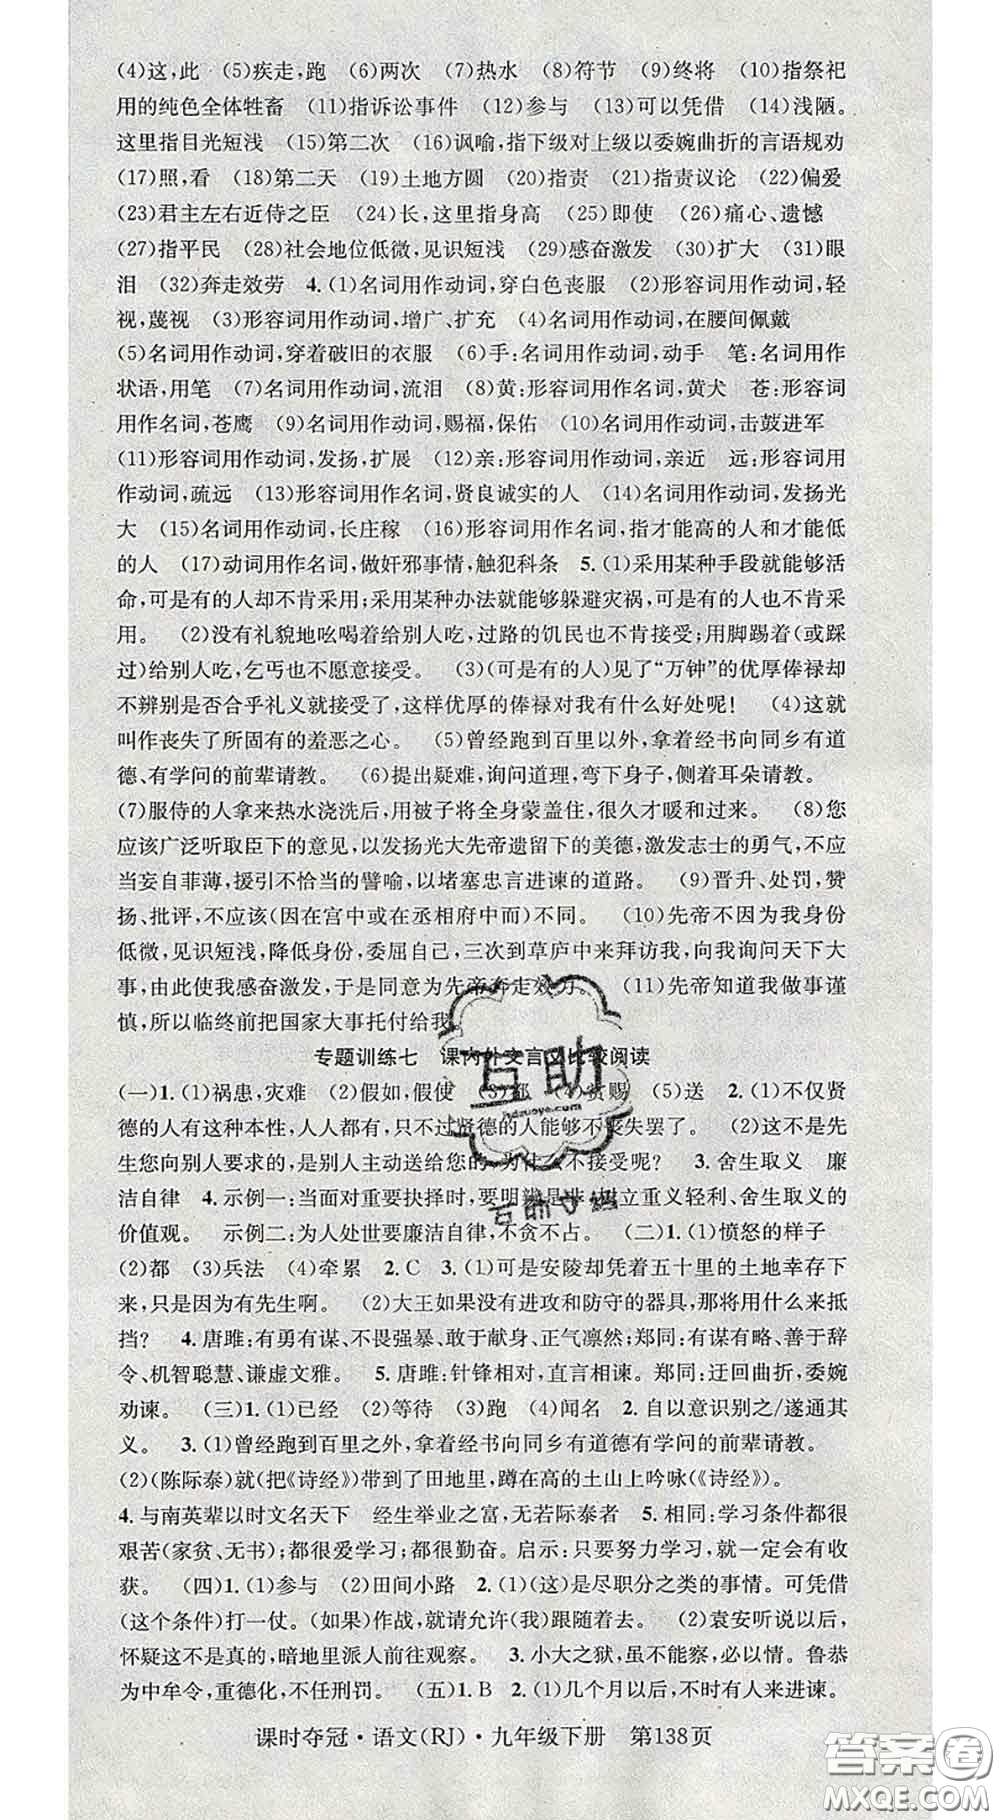 (4)这,此　(5)疾走,跑　(6)两次　(7)热水　(8)符节　(9)终将　(10)指祭祀
用的纯色全体牲畜　(11)指诉讼事件　(12)参与　(13)可以凭借　(14)浅陋。
这里指目光短浅　(15)第二次　(16)讽喻,指下级对上级以委婉曲折的言语规劝
(17)照,看　(18)第二天　(19)土地方圆　(20)指责　(21)指责议论　(22)偏爱
(23)君主左右近侍之臣　(24)长,这里指身高　(25)即使　(26)痛心、遗憾
(27)指平民　(28)社会地位低微,见识短浅　(29)感奋激发　(30)扩大　(31)眼
泪　(32)奔走效劳　4.(1)名词用作动词,穿白色丧服　(2)形容词用作动词,轻
视,蔑视　(3)形容词用作动词,增广、扩充　(4)名词用作动词,在腰间佩戴
(5)名词用作动词,穿着破旧的衣服　(6)手:名词用作动词,动手　笔:名词用作
状语,用笔　(7)名词用作动词,流泪　(8)黄:形容词用作名词,黄犬　苍:形容词
用作名词,苍鹰　(9)名词用作动词,赐福,保佑　(10)名词用作动词,击鼓进军
(11)形容词用作动词,发扬,扩展　(12)亲:形容词用作动词,亲近　远:形容词用
作动词,疏远　(13)形容词用作名词,贤良诚实的人　(14)名词用作动词,发扬光
大　(15)名词用作动词,长庄稼　(16)形容词用作名词,指才能高的人和才能低
的人　(17)动词用作名词,做奸邪事情,触犯科条　5.(1)采用某种手段就能够活
命,可是有的人却不肯采用;采用某种办法就能够躲避灾祸,可是有的人也不肯采
用。　(2)没有礼貌地吆喝着给别人吃,过路的饥民也不肯接受;用脚踢着(或踩
过)给别人吃,乞丐也不愿意接受。　(3)(可是有的人)见了“万钟”的优厚俸禄却
不辨别是否合乎礼义就接受了,这样优厚的俸禄对我有什么好处呢!　(4)这就
叫作丧失了所固有的羞恶之心。　(5)曾经跑到百里以外,拿着经书向同乡有道
德、有学问的前辈请教。　(6)提出疑难,询问道理,弯下身子,侧着耳朵请教。
(7)服侍的人拿来热水浇洗后,用被子将全身蒙盖住,很久才暖和过来。　(8)您
应该广泛听取臣下的意见,以发扬光大先帝遗留下的美德,激发志士的勇气,不应
当妄自菲薄,援引不恰当的譬喻,以堵塞忠言进谏的道路。　(9)晋升、处罚,赞
扬、批评,不应该(因在宫中或在丞相府中而)不同。　(10)先帝不因为我身份
低微,见识短浅,降低身份,委屈自己,三次到草庐中来拜访我,向我询问天下大
事,由此使我感奋激发,于是同意为先帝奔走效力。　(11)先帝知道我做事谨
慎,所以临终前把国家大事托付给我。
专题训练七　课内外文言文比较阅读
(一)1.(1)祸患,灾难　(2)假如,假使　(3)都　(4)赏赐　(5)送　2.(1)不仅贤
德的人有这种本性,人人都有,只不过贤德的人能够不丧失罢了。　(2)这不是先
生您向别人要求的,是别人主动送给您的,为什么不接受呢?　3.舍生取义　廉
洁自律　4.示例一:当面对重要抉择时,要明辨是非,树立重义轻利、舍生取义的
价值观。　示例二:为人处世要廉洁自律,不贪不占。　(二)1.(1)愤怒的样子
(2)都　(3)兵法　(4)牵累　2.C　3.(1)可是安陵却凭着五十里的土地幸存下
来,只是因为有先生啊。　(2)大王如果没有进攻和防守的器具,那将用什么来抵
挡?　4.唐雎:有勇有谋、不畏强暴、敢于献身、正气凛然;郑同:有谋有略、善于辞
令、机智聪慧、谦虚文雅。　5.唐雎:针锋相对,直言相谏。郑同:迂回曲折,委婉
劝谏。　(三)1.(1)已经　(2)等待　(3)跑　(4)闻名　2.自以意识别之/遂通其
义。　3.(1)曾经跑到百里之外,拿着经书向同乡有道德有学问的前辈请教。
(2)(陈际泰)就(把《诗经》)带到了田地里,蹲在高的土山上吟咏(《诗经》)。
4.与南英辈以时文名天下　经生举业之富,无若际泰者　5.相同:学习条件都很
艰苦(家贫、无书);都很爱学习;都很勤奋。启示:只要努力学习,就一定会有收
获。　(四)1.(1)参与　(2)田间小路　2.(1)(这)是尽职分之类的事情。可凭借
(这个条件)打一仗。(如果)作战,就请允许(我)跟随着去。　(2)袁安听说以后,
怀疑这不是真的,暗地里派人前往观察。　3.小大之狱,虽不能察,必以情。鲁恭
为中牟令,重德化,不任刑罚。　(五)1.B　2.(1)几个月以后,不时有人来进谏。
课时夺冠·语文(RJ)·九年级下册　第138页
互助
答案圈
MXQE.COM